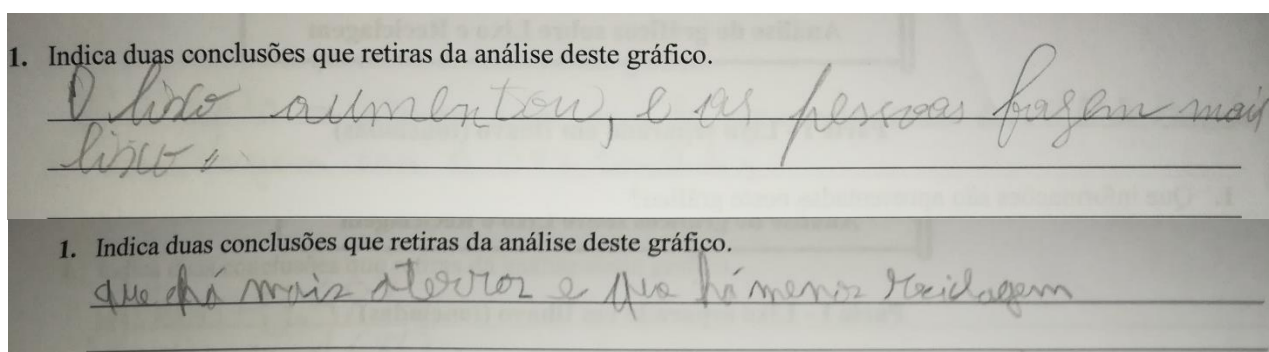 1. Indica duas conclusões que retiras da análise deste gráfico.
O lixo aumentou, e as pessoas fazem mais
lixo.
1. Indica duas conclusões que retiras da análise deste gráfico.
que há mais aterros e que há menos reciclagem